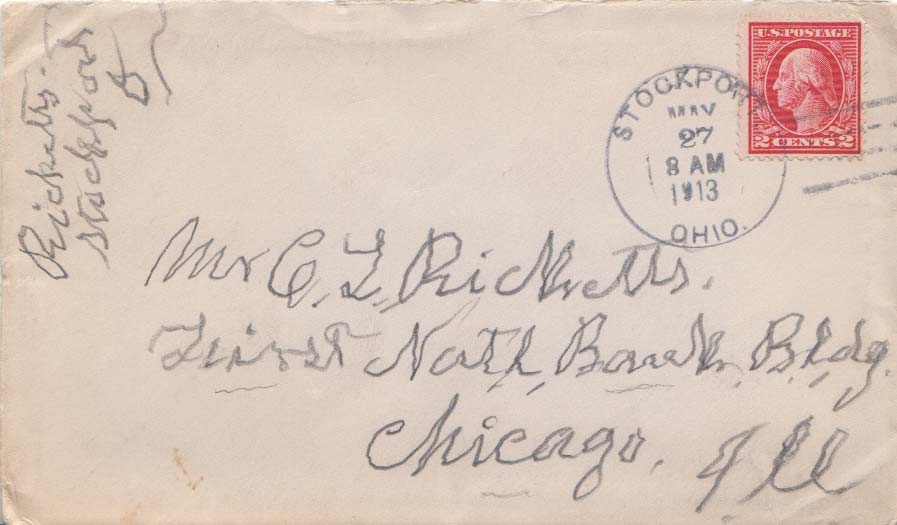 Ricketts.
Stockport
O
U.S. POSTAGE
2 CENTS 2
STOCKPORT
MAY
27
8 AM
1913
OHIO.
Mr C. L. Ricketts.
First Natl, Bank, Bldg.
Chicago, Ill